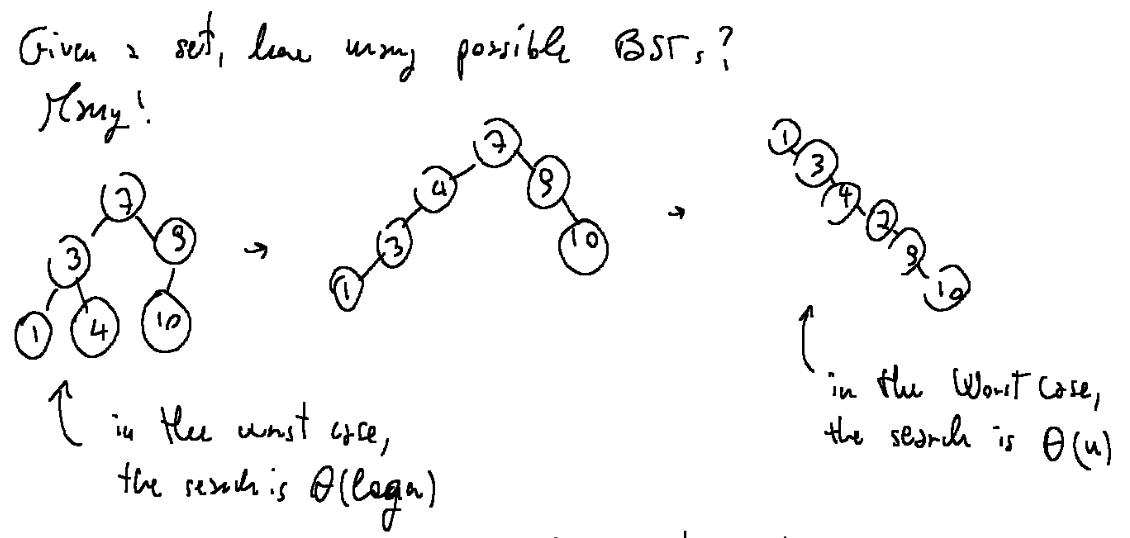 Given a set, how many possible BSTs?
Many!
7
3 9
1 4 10
→
7
4 9
3 10
1
→
1
3
4
7
9
10
in the worst case,
the search is θ(logn)
in the Worst Case,
the search is θ(n)